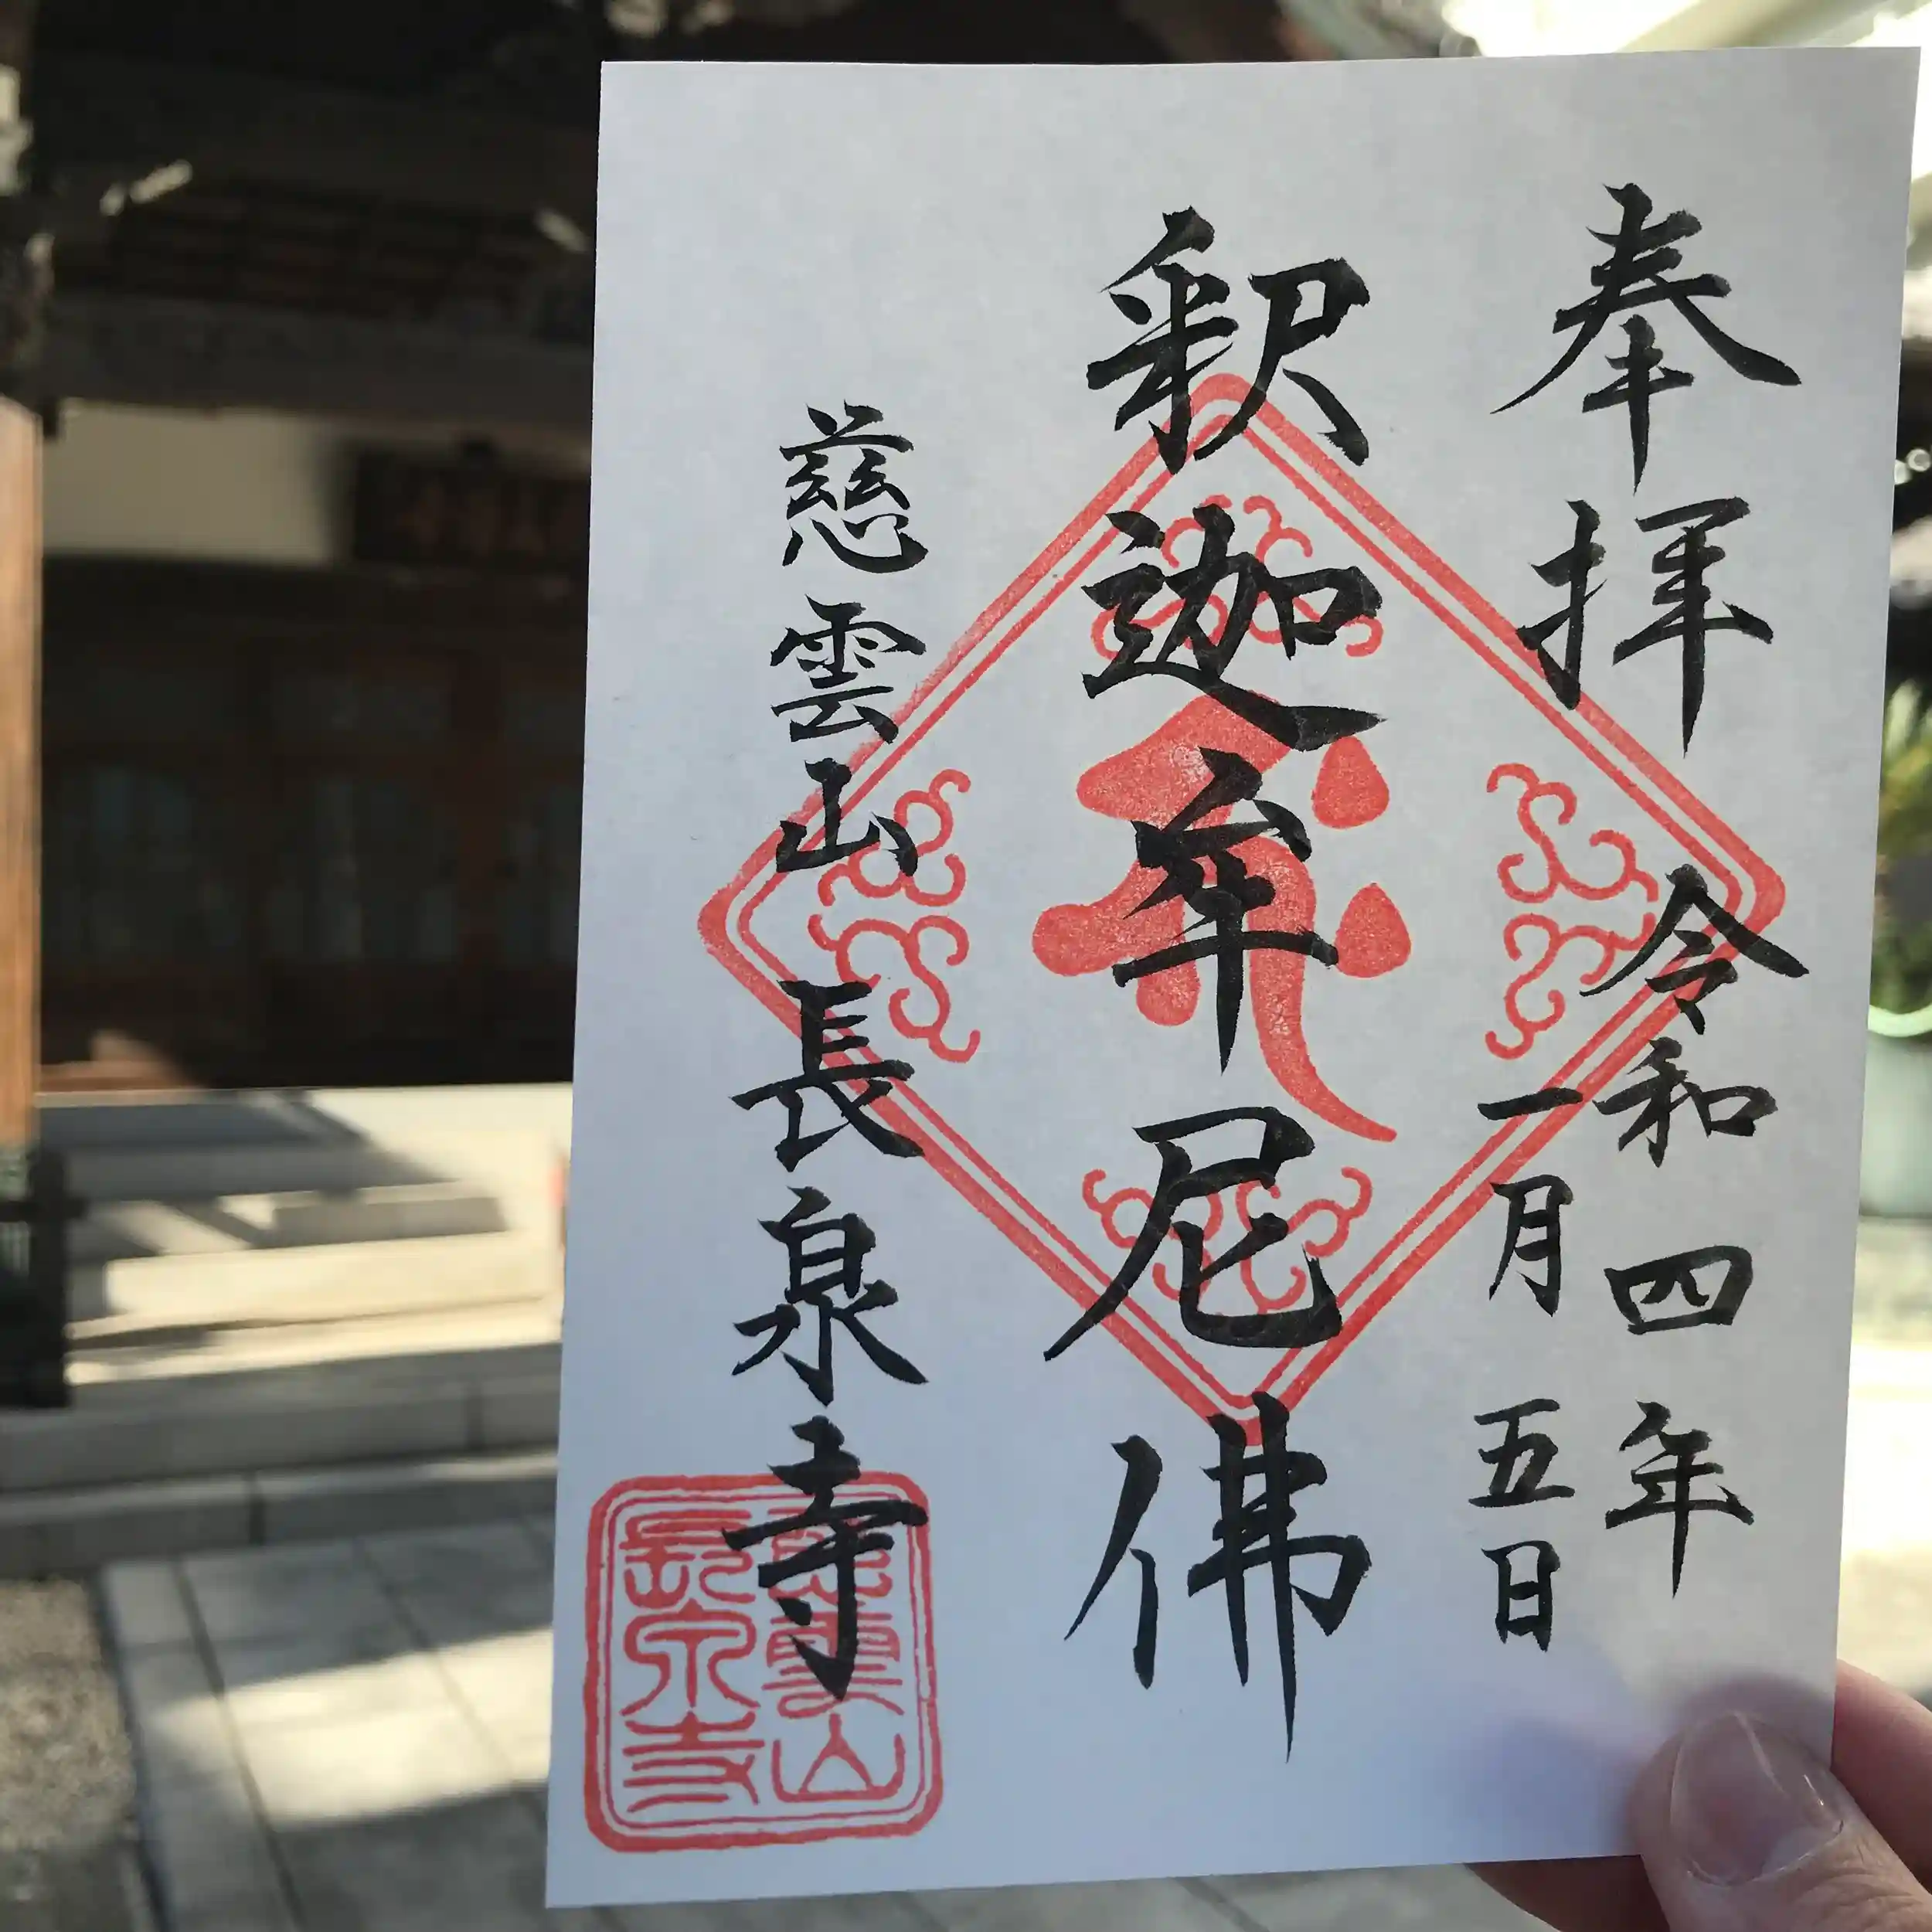 奉拝
令和四年
一月五日
釈迦牟尼佛
慈雲山長泉寺
慈雲山
長泉寺